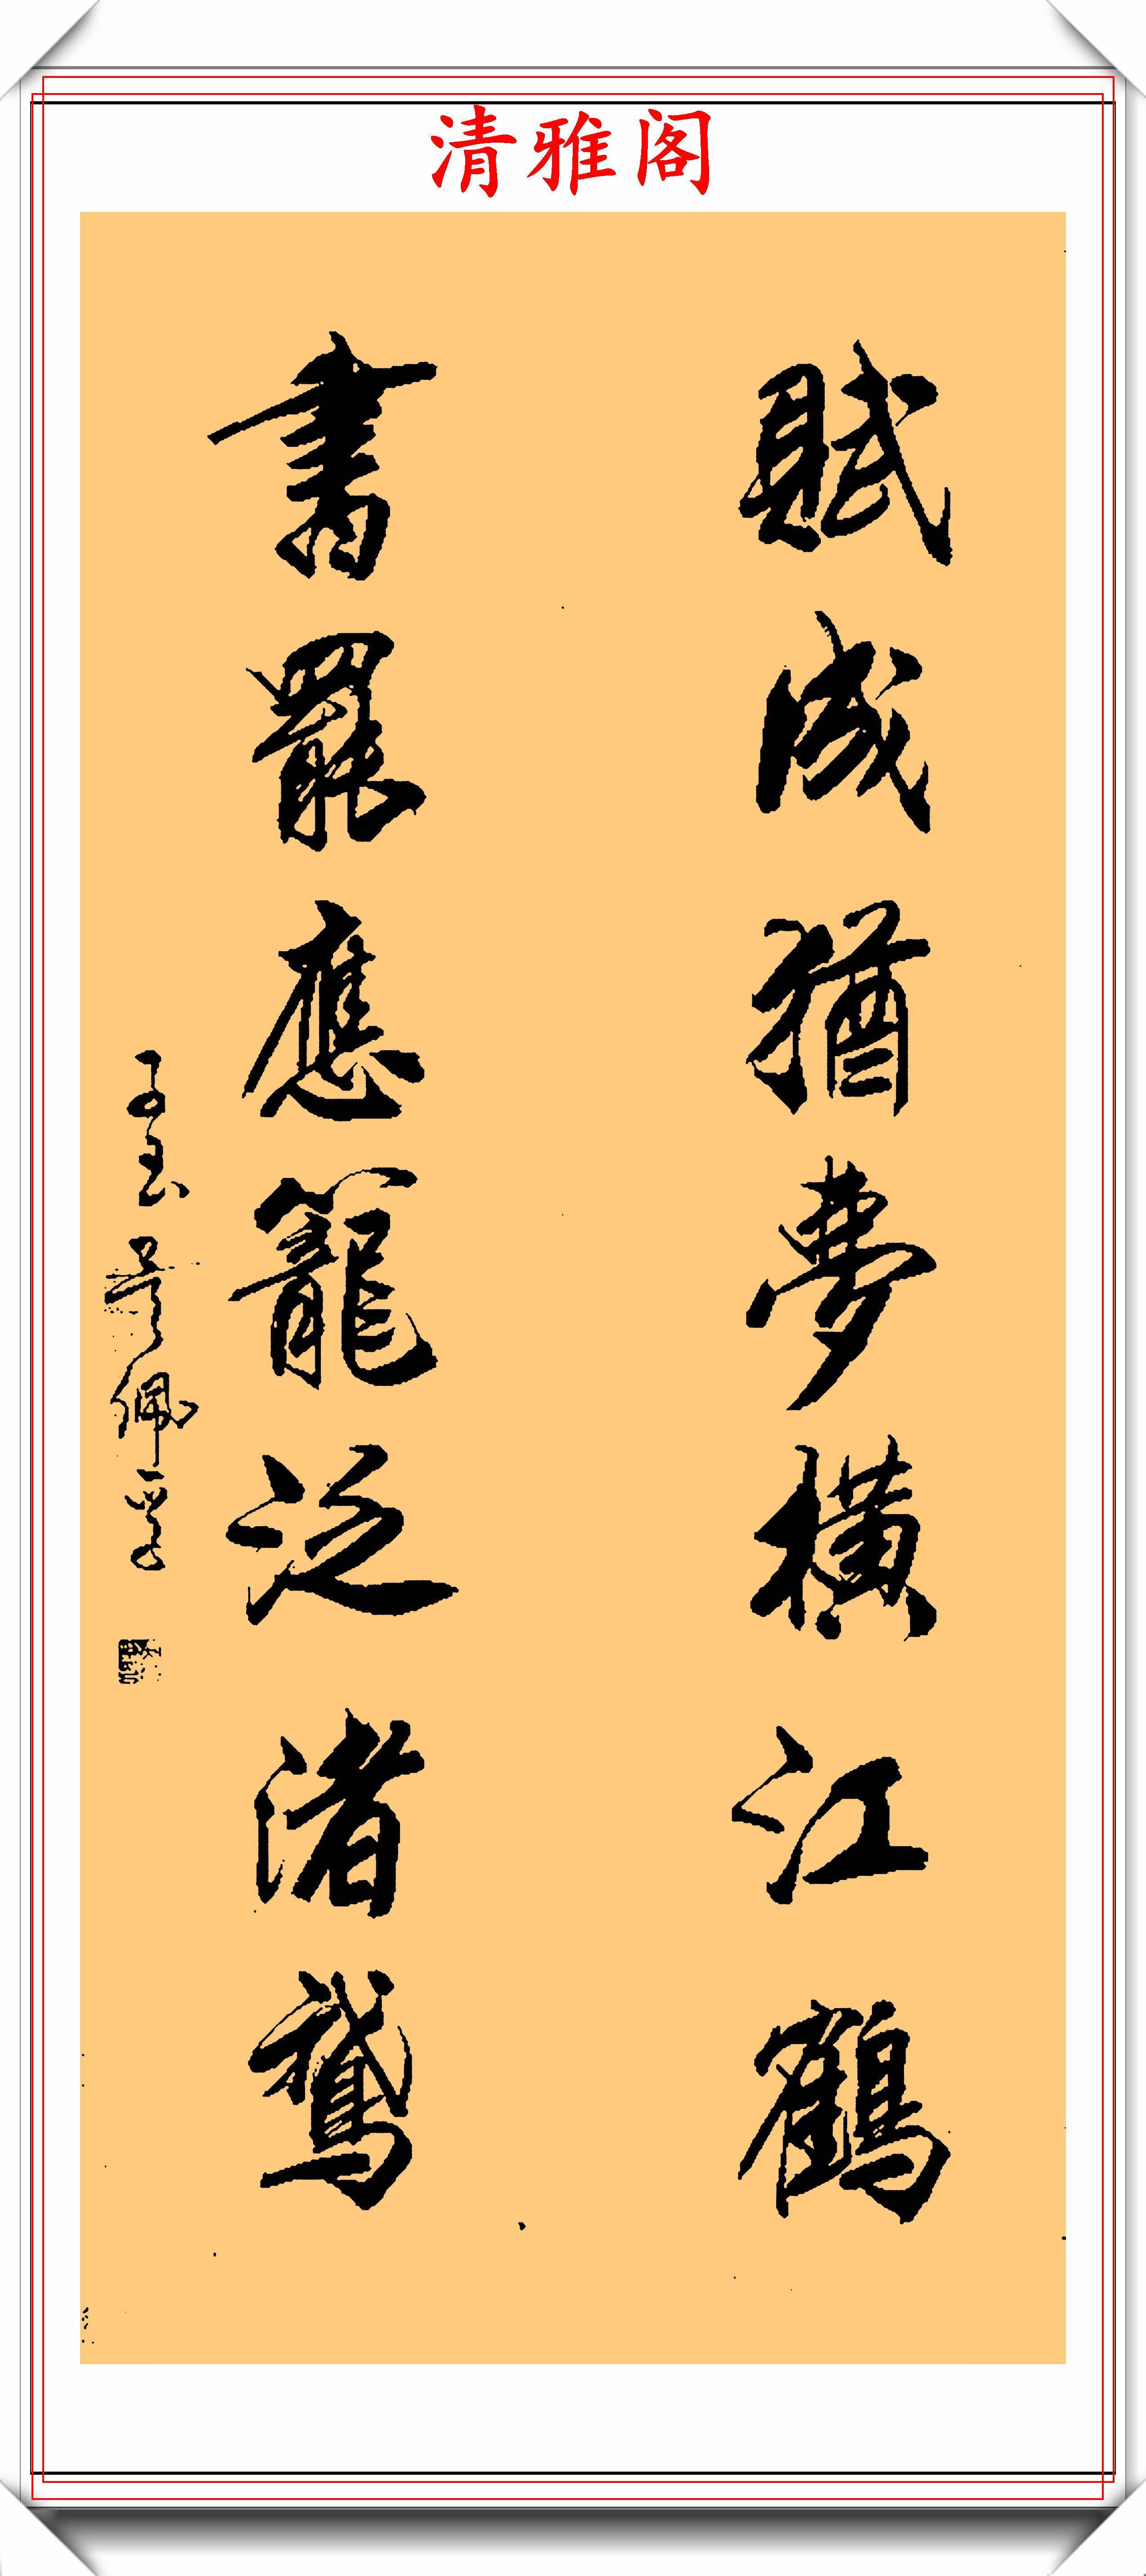 清雅阁
賦成猶夢橫江鶴
書罷應籠泛渚鵝
子玉吳佩孚